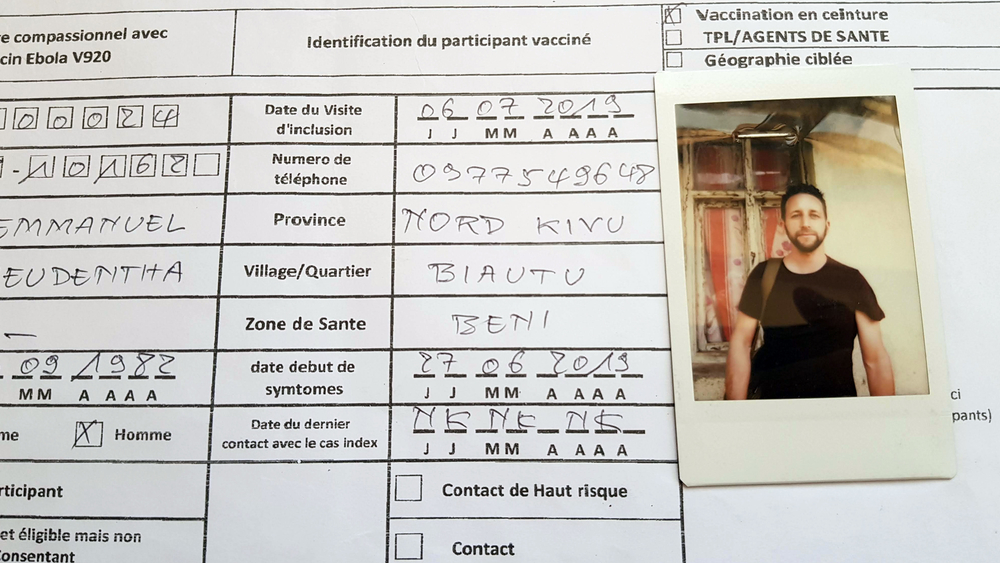 re compassionnel avec
cin Ebola V920
Identification du participant vacciné
Vaccination en ceinture
TPL/AGENTS DE SANTE
Géographie ciblée
00024
Date du Visite
d'inclusion
06 07 2019
J J MM A AAA
-10162
Numero de
téléphone
0977549648
EMMANUEL
Province
NORD KIVU
EUDENTHA
Village/Quartier
BIAUTU
Zone de Sante
BENI
09 1982
MM A AAA
date debut de
symtomes
27 06 2019
J J MM A AAA
me X Homme
Date du dernier
contact avec le cas index
NK NK NK
J J MM A AAA
rticipant
Contact de Haut risque
et éligible mais non
Consentant
Contact
ci
pants)